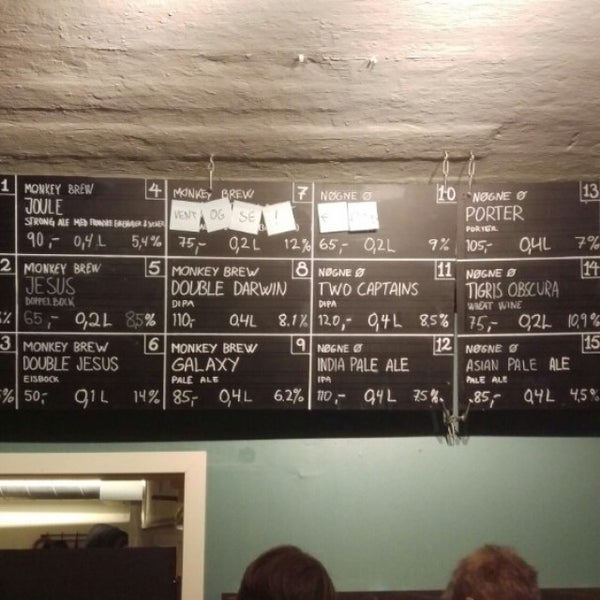 1
MONKEY BREW 4
JOULE
STRONG ALE MED
90,- 0,4 L 5,4%
MONKEY BREW 7
VENT OG SE !
75,- 0,2L 12%
NØGNE Ø 10
65,- 0,2L 9%
NØGNE Ø 13
PORTER
PORTER
105,- 0,4L 7%
2
MONKEY BREW 5
JESUS
DOPPELBOCK
65,- 0,2L 8,5%
MONKEY BREW 8
DOUBLE DARWIN
DIPA
110,- 0,4L 8.1%
NØGNE Ø 11
TWO CAPTAINS
DIPA
120,- 0,4 L 8,5%
NØGNE Ø 14
TIGRIS OBSCURA
WHEAT WINE
75,- 0,2L 10,9%
3
MONKEY BREW 6
DOUBLE JESUS
EISBOCK
50,- 0,1 L 14%
MONKEY BREW 9
GALAXY
PALE ALE
85,- 0,4L 6.2%
NØGNE Ø 12
INDIA PALE ALE
IPA
110,- 0,4L 7.5%
NØGNE Ø 15
ASIAN PALE ALE
PALE ALE
85,- 0,4L 4,5%